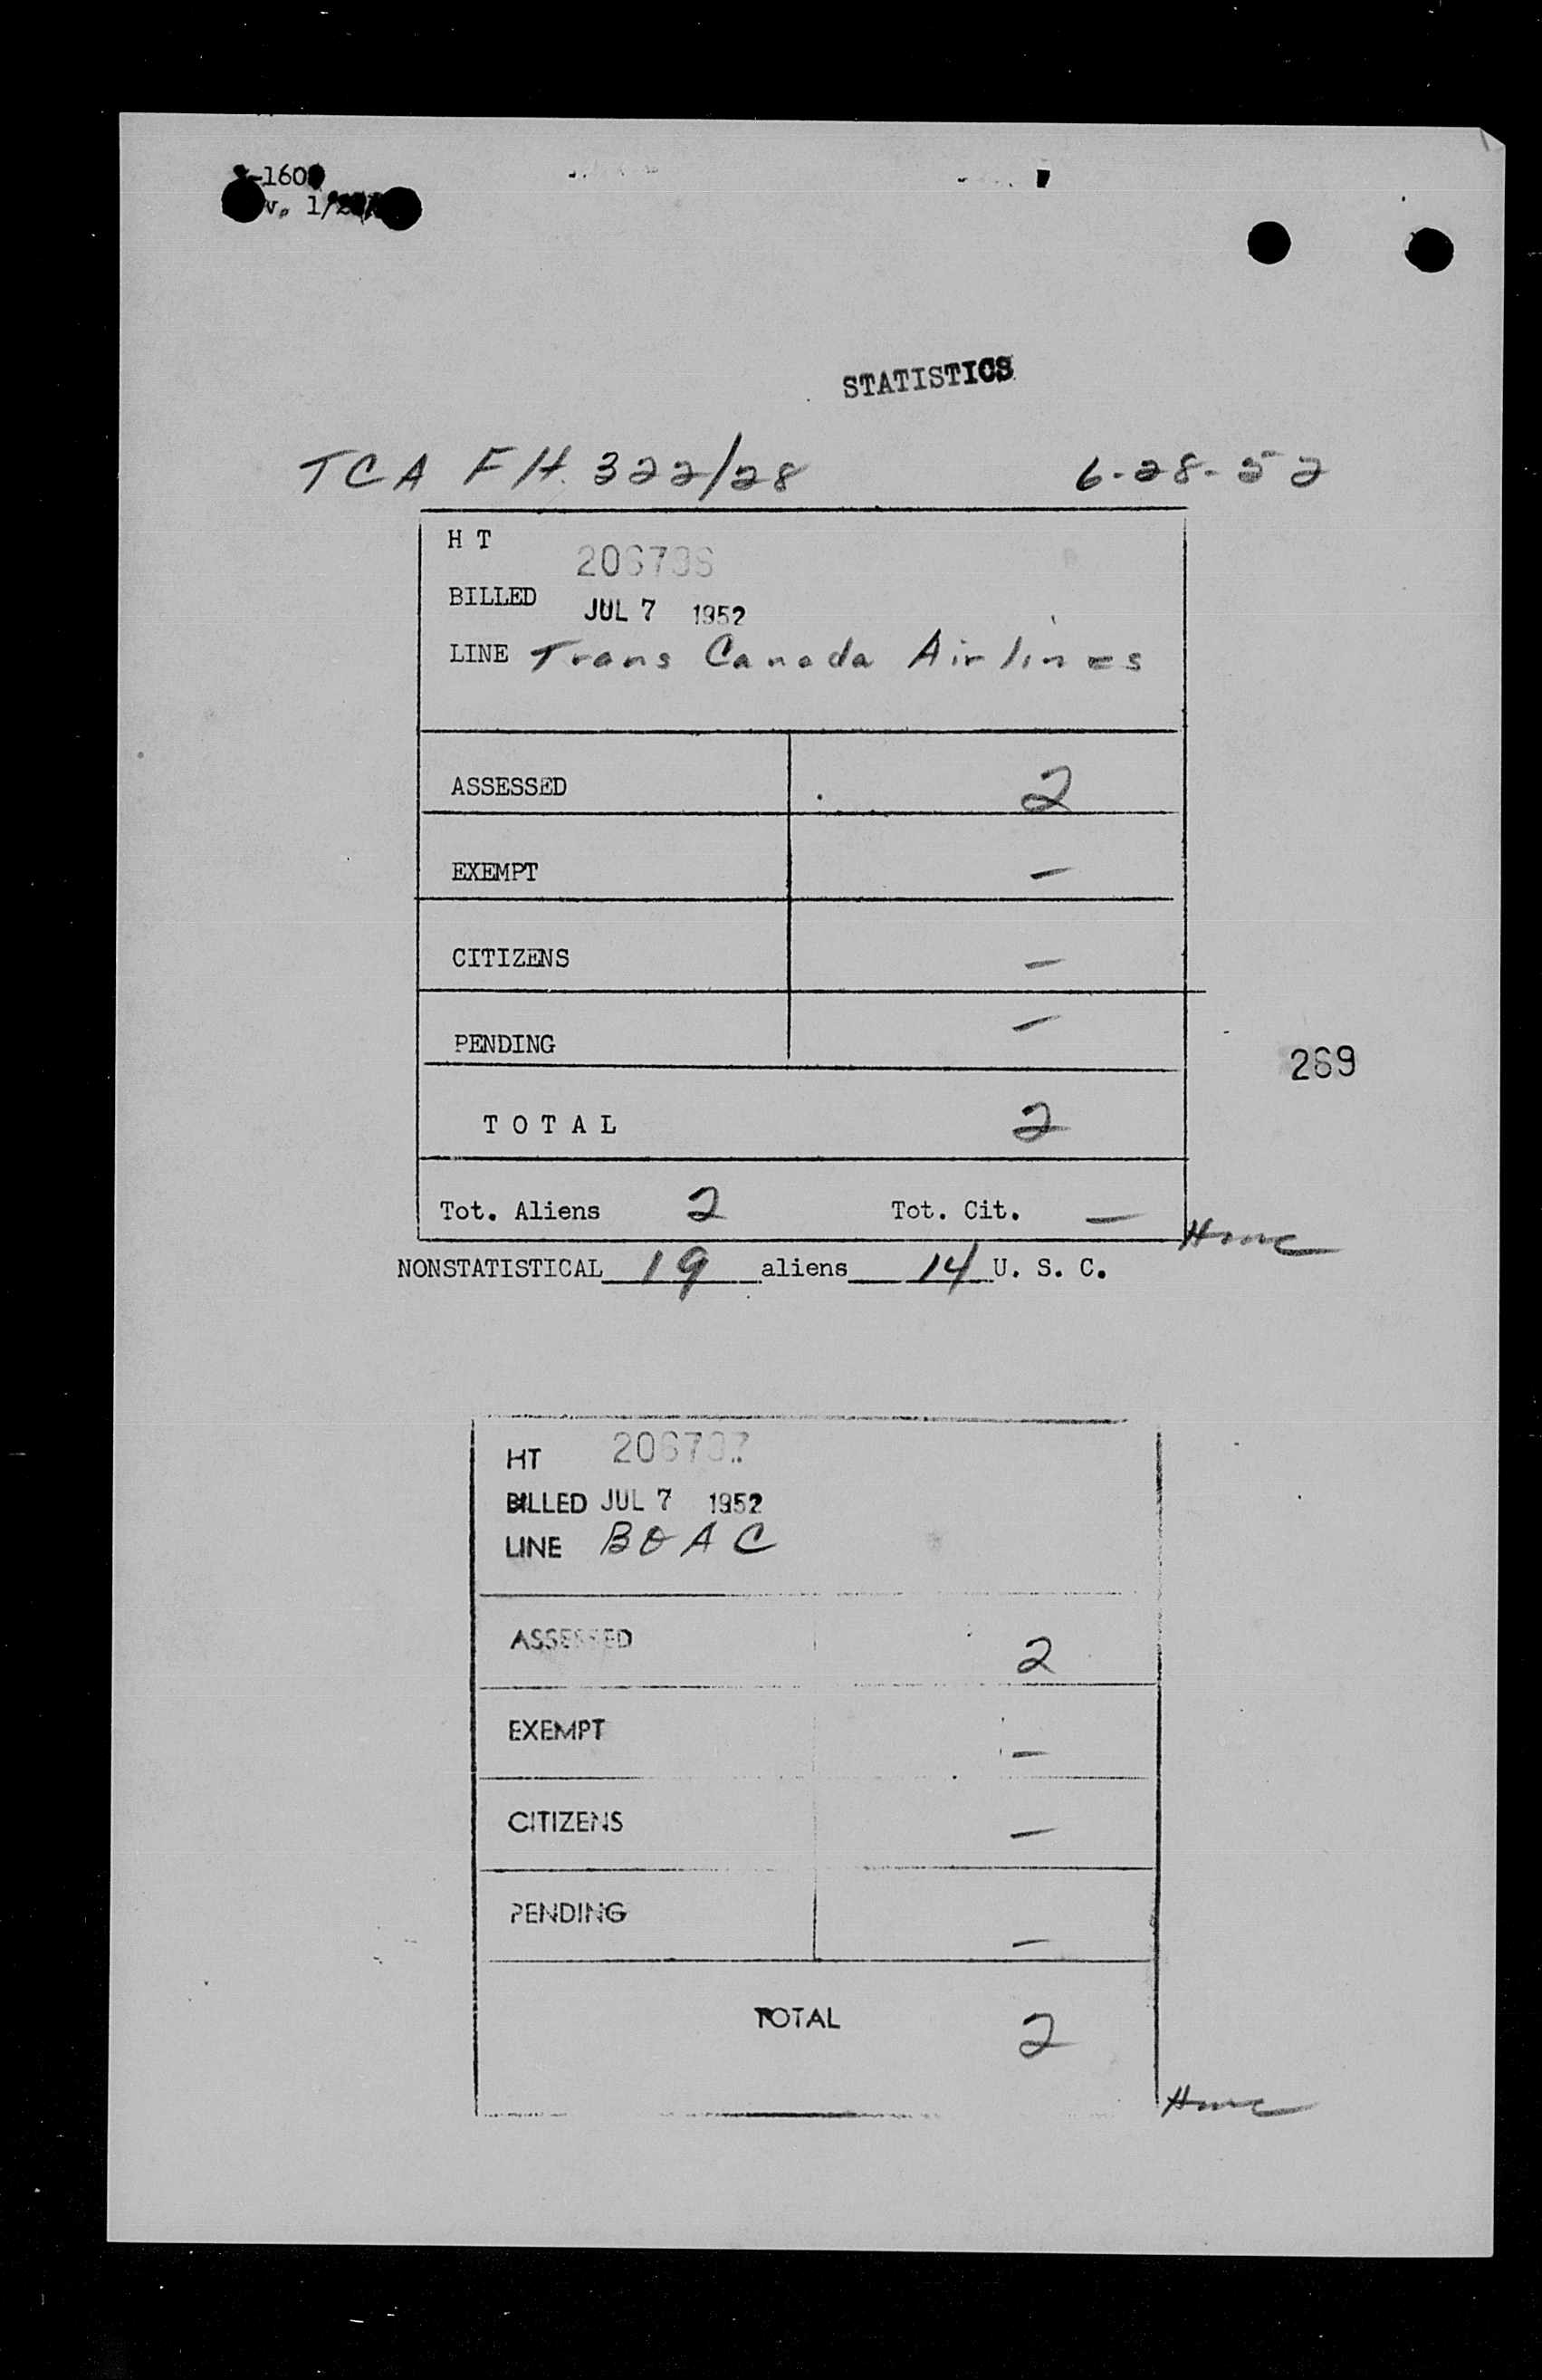 STATISTICS
TCA Flt. 322/28 6-28-52
H T
BILLED JUL 7 1952
LINE Trans Canada Airlines
ASSESSED 2
EXEMPT —
CITIZENS —
PENDING —
269
TOTAL 2
Tot. Aliens 2 Tot. Cit. —
NONSTATISTICAL 19 aliens 14 U. S. C.
HT
BILLED JUL 7 1952
LINE BOAC
ASSESSED 2
EXEMPT —
CITIZENS —
PENDING —
TOTAL 2